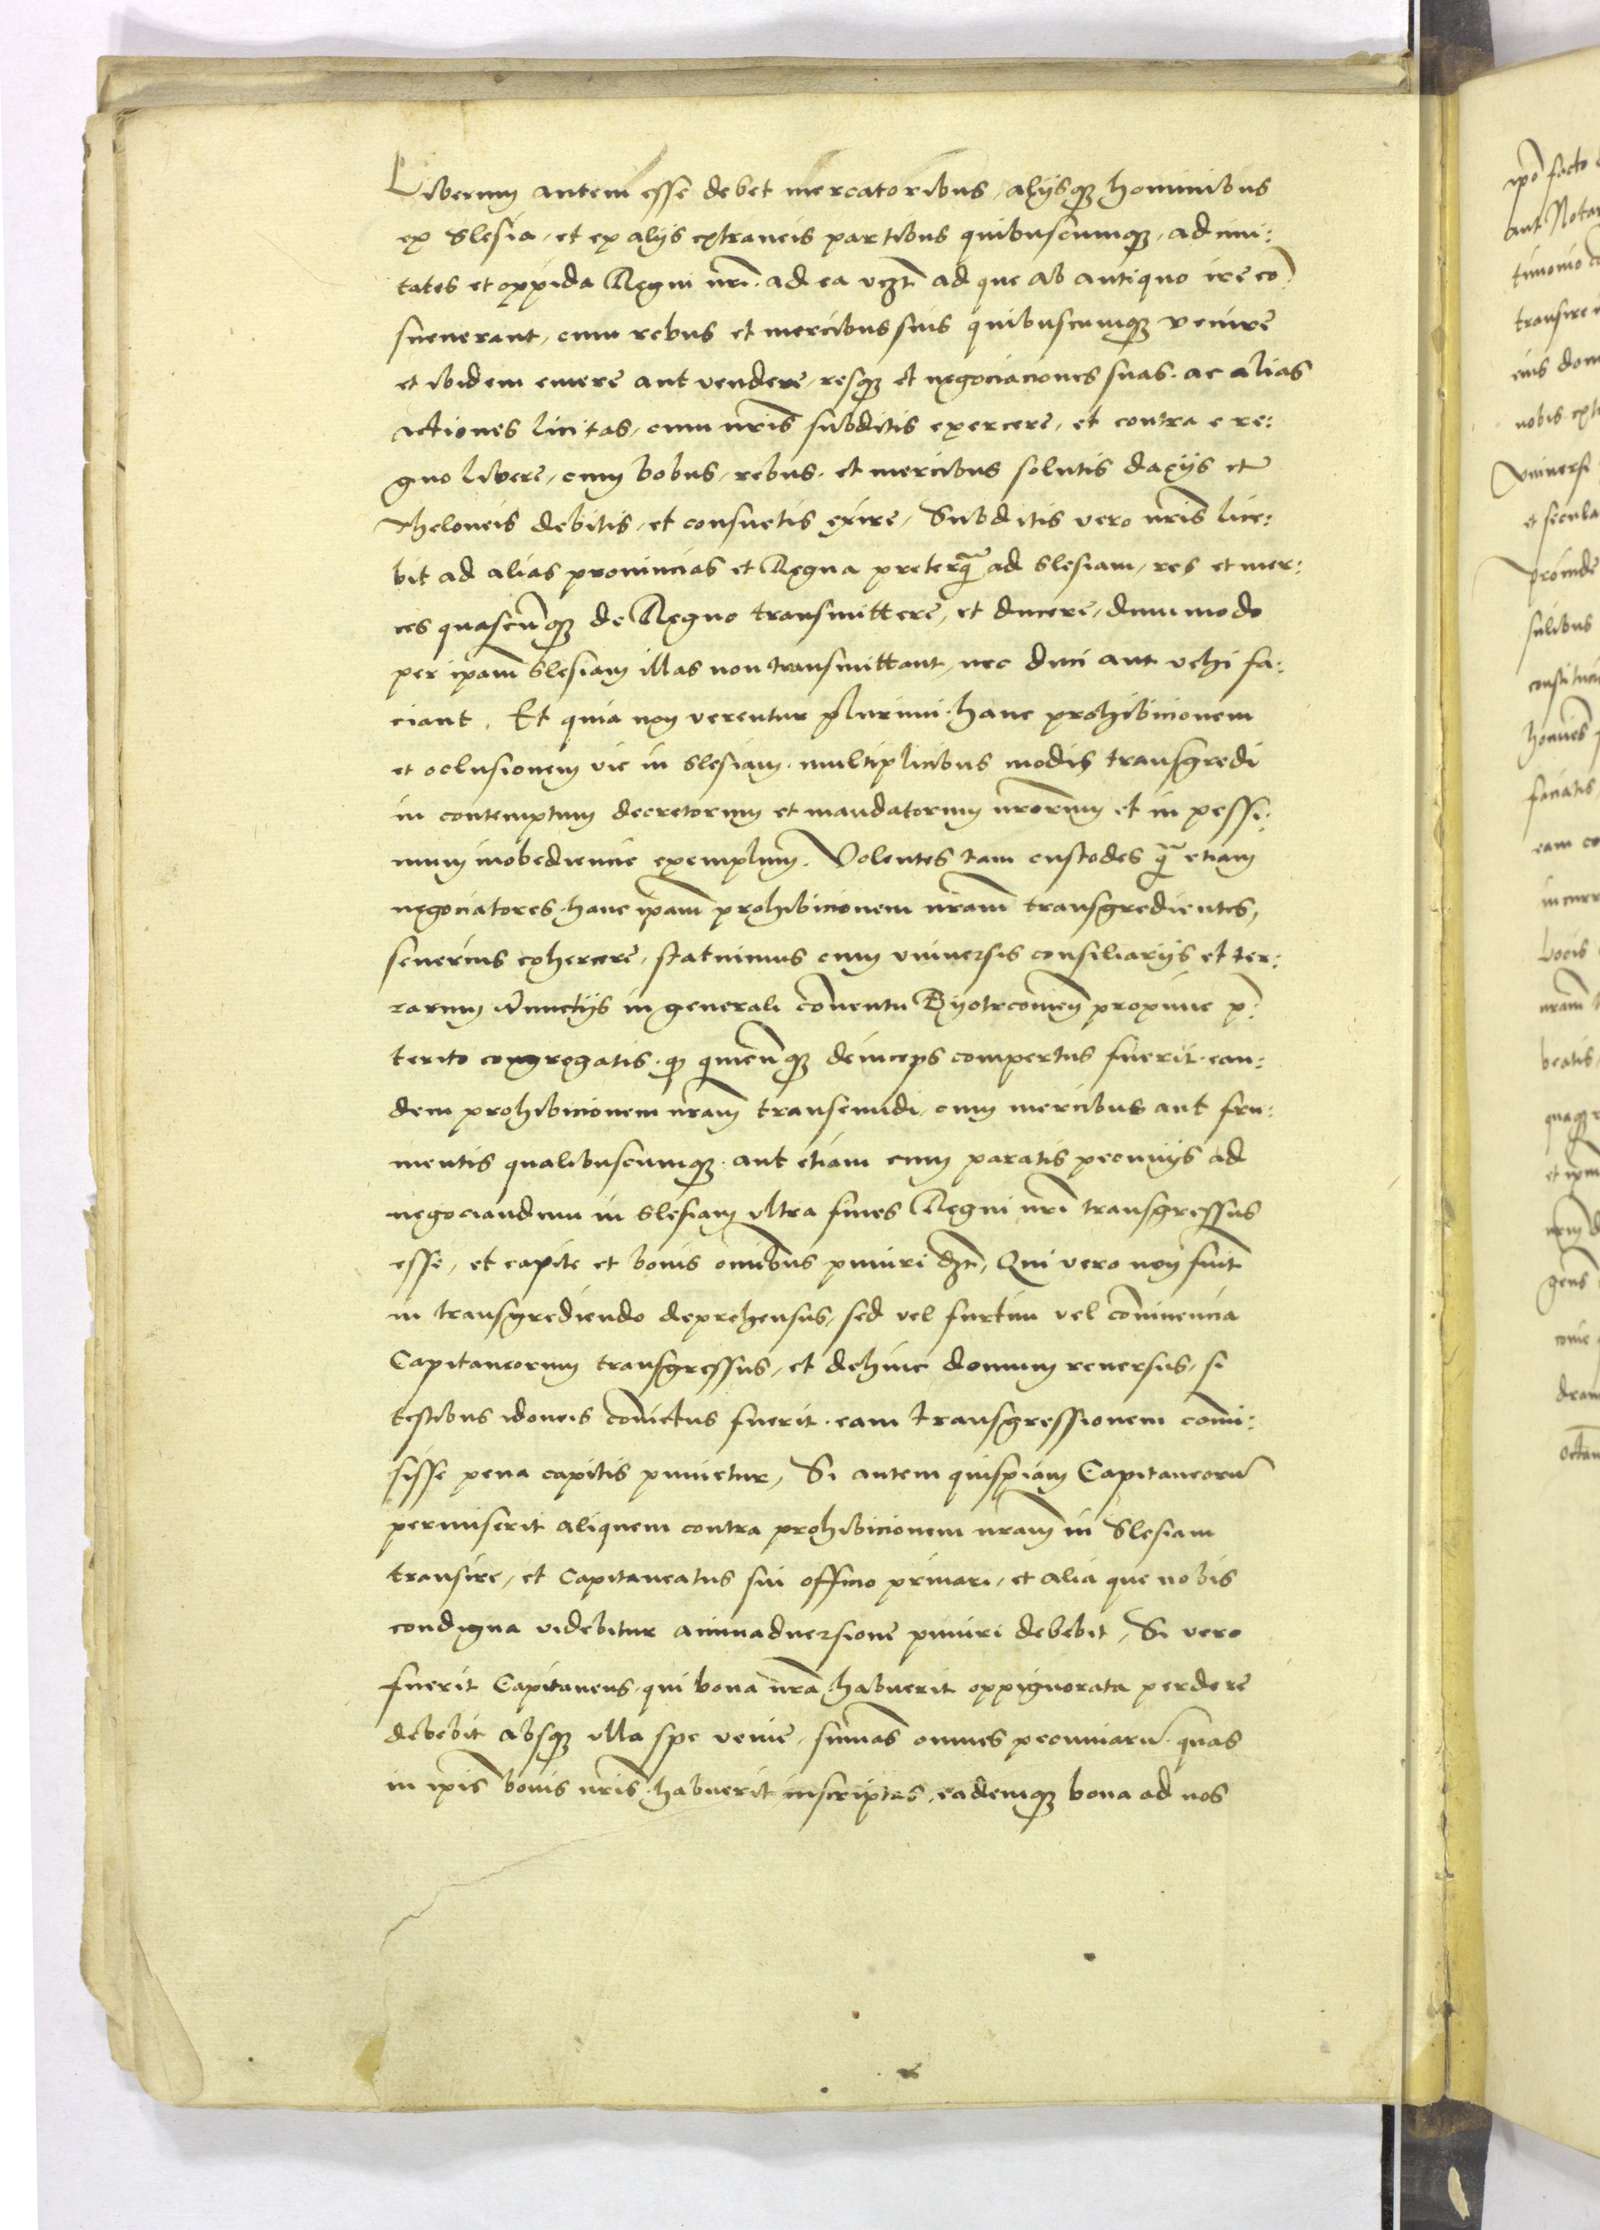 Liberum autem esse debet mercatoribus, alijsq3 hominibus
ex Slesia, et ex alijs extraneis partibus quibuscumq3, ad civi:
tates et oppida Regni nrī. ad ea vz̄t ad que ab antiquo ire co͂
sueuerant, cum rebus et mercibus suis quibuscumq3 venire
et ibidem emere aut vendere, resq3 et negociaciones suas. ac alias
actiones licitas, cum nrīs subditis exercere, et contra e re:
gno libere, cum bobus, rebus. et mercibus solutis daciis et
theloneis debitis, et consuetis exire, Subditis vero nrīs lice:
bit ad alias prouincias et Regna preterq̄ ad Slesiam, res et mer:
ces quascūq3 de Regno transmittere, et ducere, dummodo
per ipām Slesiam illas non transmittant, nec duci aut vehi fa:
ciant. Et quia non verentur plurimi. hanc prohibicionem
et oclusionem vie in Slesiam. multiplicibus modis transgredi
in contemptum decretorum et mandatorum nrorum et in pessi:
mum inobediencie exemplum. Volentes tam custodes q̄ etiam
negociatores. hanc ipām prohibicionem nrām transgredientes,
seuerius cohercere, statuimus cum vniuersis consiliarijs et ter:
rarum Nuncijs in generali cōuentu Pyotrcouien̄ proxime p̄
terito congregatis. q̄ quicūq3 deinceps compertus fuerit. ean:
dem prohibicionem nrām transeundi, cum mercibus aut fru:
mentis qualibuscumq3. aut etiam cum paratis pecunijs ad
negociandum in Slesiam vltra fines Regni nrī transgressus
esse, et capite et bonis om̄ibus puniri dz̄t, Qui vero non fuit
in transgrediendo deprehensus, sed vel furtim vel cōniuencia
Capitaneorum transgressus, et dehinc domum reuersus, si
testibus idoneis cōuictus fuerit. eam transgressionem com̄i:
sisse pena capitis punietur, Si autem quispiam Capitaneorū
permiserit aliquem contra prohibicionem nrām in Slesiam
transire, et Capitaneatus sui officio priuari, et alia que nobis
condigna videbitur animaduersione puniri debebit, Si vero
fuerit Capitaneus. qui bona nrā habuerit oppignorata perdere
debebit absq3 vlla spe venie, sum̄as omnes pecuniarū. quas
in ipīs bonis nrīs. habuerit inscriptas, eademq3 bona ad nos